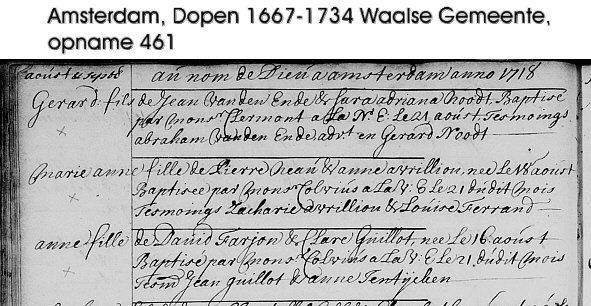 Amsterdam, Dopen 1667-1734 Waalse Gemeente,
opname 461
au nom de Dieu a amsterdam anno 1718
Gerard fils de Jean Vanden Ende & Sara adriana Noodt, Baptisé
par Monsr Clermont a La N: E: Le 21 aoust. Tesmoings
abraham Vanden Ende, advt en Gerard Noodt
marie anne fille de Pierre Neau & anne avrillion, nee Le 18 aoust
Baptisee par Monsr Colvius a La V: E Le 21 dudit Mois
Tesmoings Zacharie avrillion & Louise Ferrand
anne fille de David Farjon & Clare Guillot, nee Le 16 aoust
Baptisee par Monsr Colvius a La V: E Le 21. dudit Mois
Tesm Jean guillot & anne Tentijcken